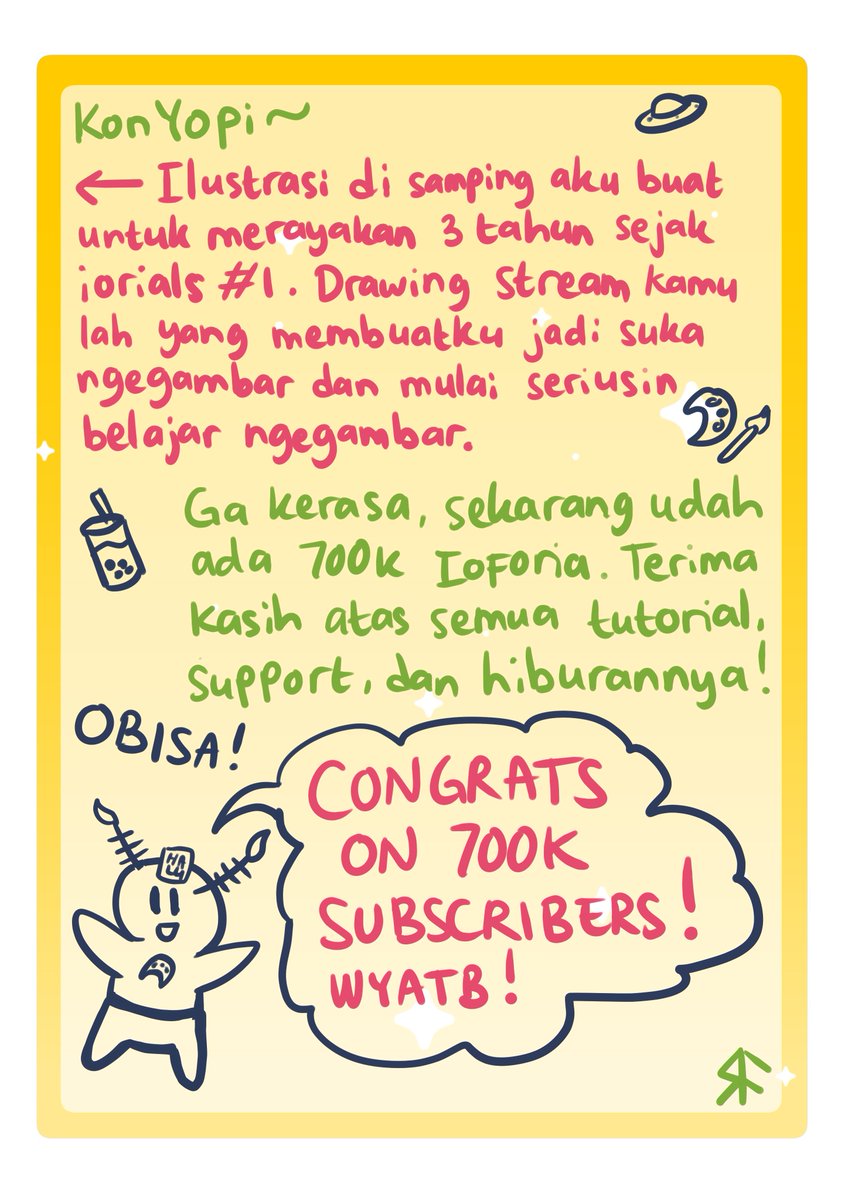 KonYopi~
← Ilustrasi di samping aku buat
untuk merayakan 3 tahun sejak
iorials #1. Drawing stream kamu
lah yang membuatku jadi suka
ngegambar dan mulai seriusin
belajar ngegambar.
Ga kerasa, sekarang udah
ada 700k IoForia. Terima
kasih atas semua tutorial,
support, dan hiburannya!
OBISA!
CONGRATS
ON 700K
SUBSCRIBERS!
WYATB!